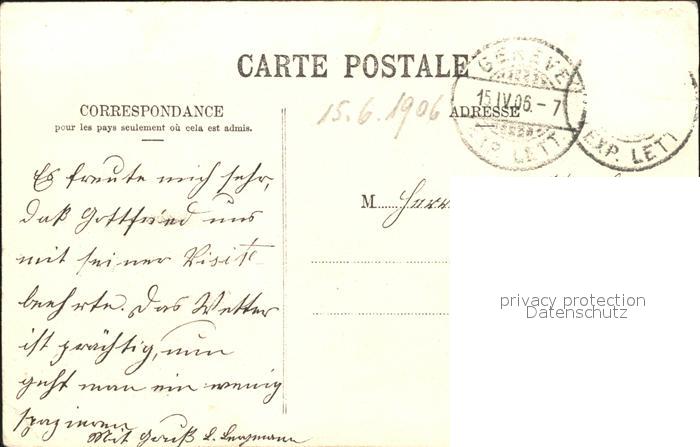 CARTE POSTALE
CORRESPONDANCE
pour les pays seulement où cela est admis.
15.6.1906
ADRESSE
GENÈVE
15.IV.06.-7
EXP. LETT.
EXP. LETT
M Herr
Es freute mich sehr,
daß Gottfried uns
mit seiner Visite
beehrte. Das Wetter
ist prächtig, nun
geht man ein wenig
spazieren
Mit Gruß L.
privacy protection
Datenschutz